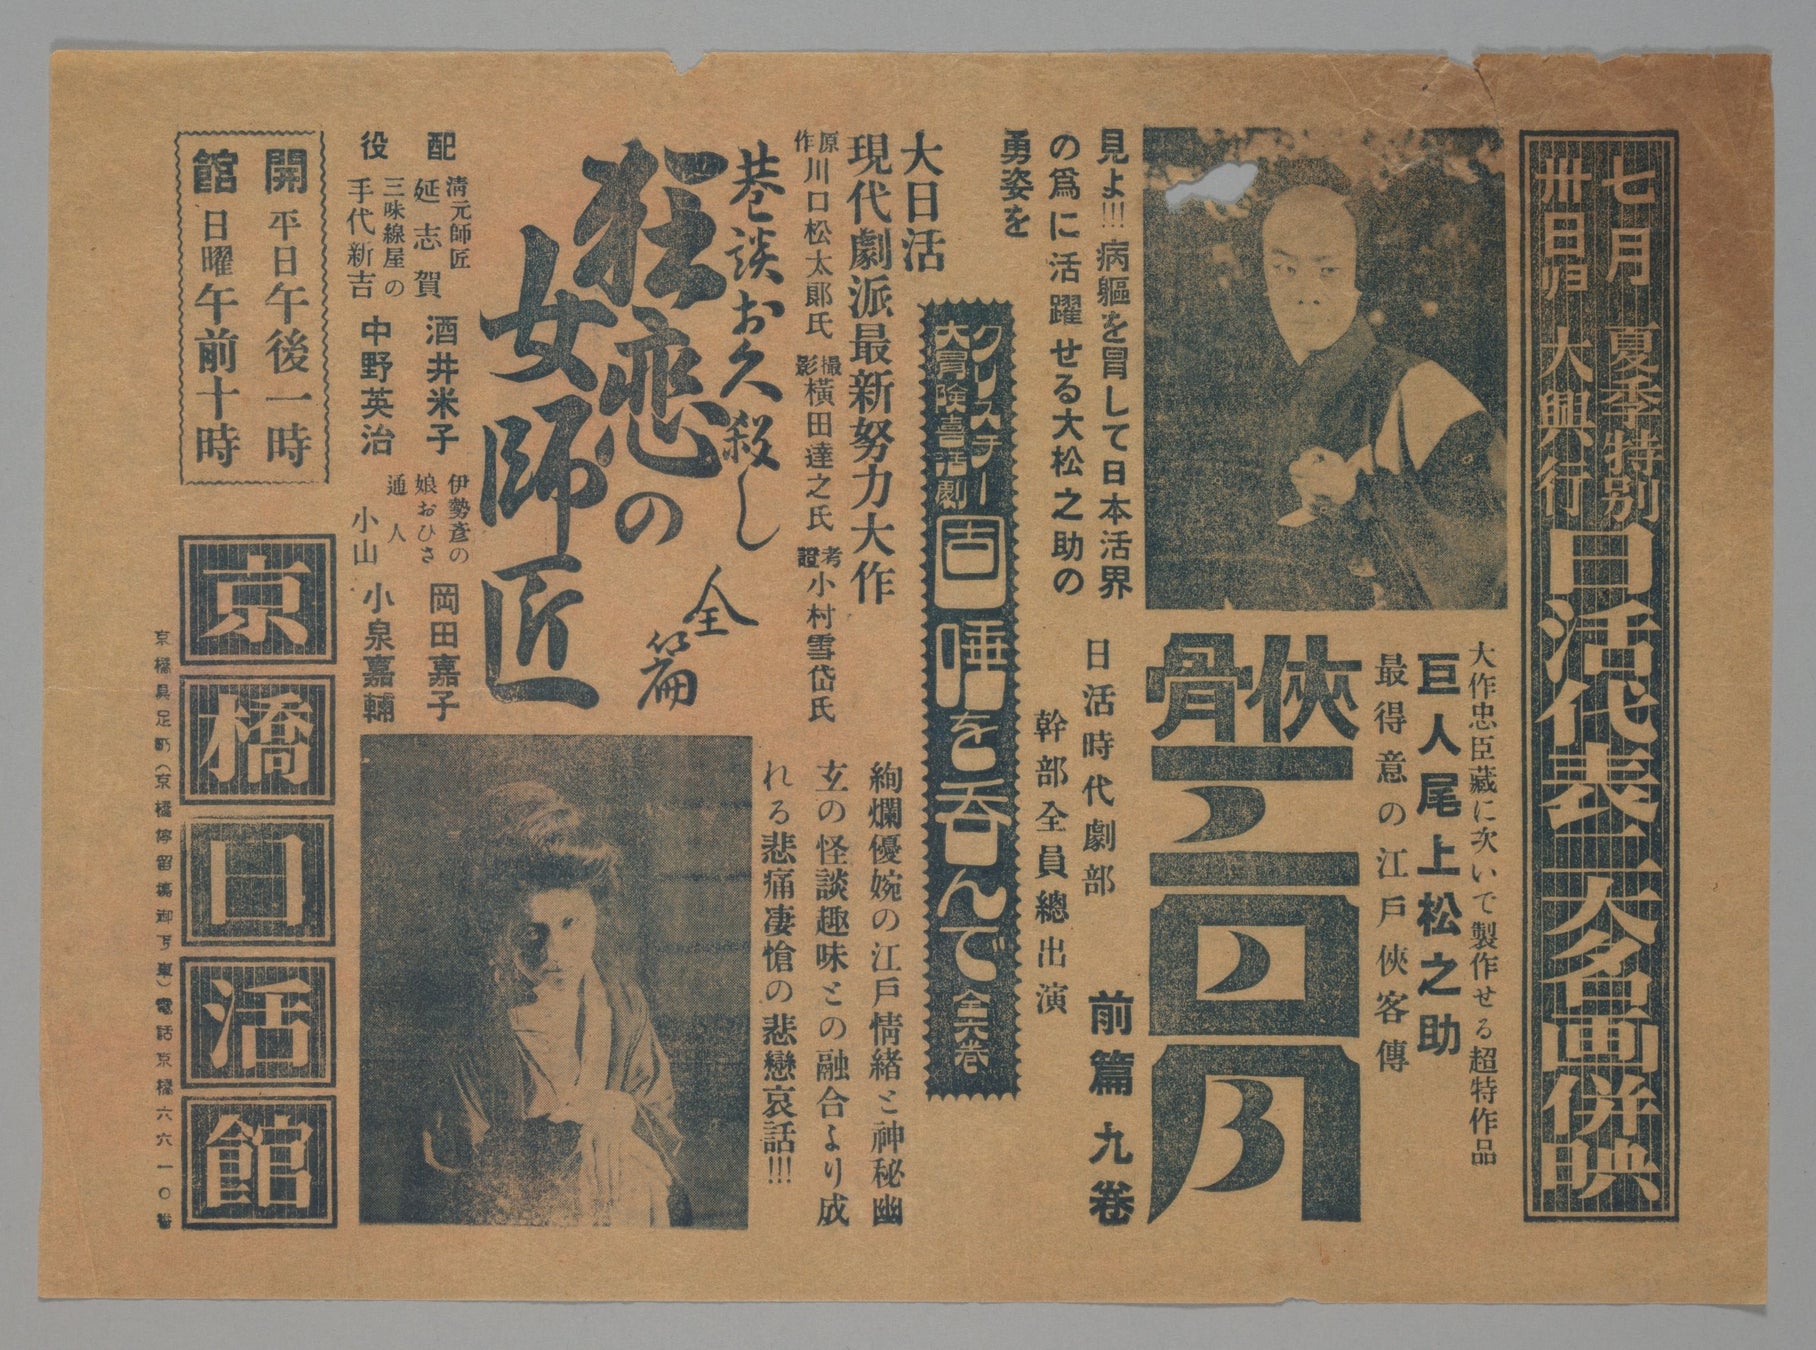 七月卅日ヨリ
夏季特別大興行
日活代表二大名画併映
大作忠臣藏に次いで製作せる超特作品
巨人尾上松之助
最得意の江戸俠客傳
俠骨三日月
前篇九卷
日活時代劇部
幹部全員總出演
見よ!!!病軀を冒して日本活界
の爲に活躍せる大松之助の
勇姿を
クリスチー
大冒険喜活劇
固唾を呑んで
全六卷
大日活
現代劇派最新努力大作
原作 川口松太郎氏
撮影 橫田達之氏
考證 小村雪岱氏
巷談お久殺し
狂恋の女師匠
全篇
絢爛優婉の江戸情緒と神秘幽
玄の怪談趣味との融合より成
れる悲痛凄愴の悲戀哀話!!!
配役
淸元師匠延志賀 酒井米子
三味線屋の手代新吉 中野英治
伊勢彥の娘おひさ 岡田嘉子
通人小山 小泉嘉輔
開館
平日午後一時
日曜午前十時
京橋日活館
京橋具足町(京橋停留場御下車)電話京橋六六一〇番